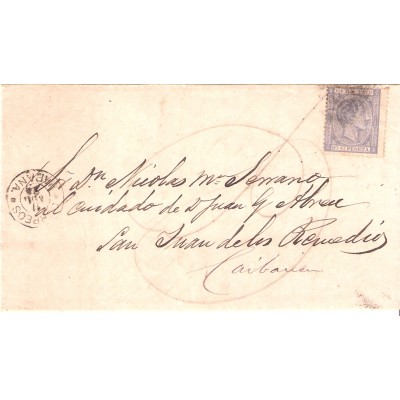 Sor Dn Nicolas Ma Serrano
al Cuidado de D Juan G Abreu
San Juan de los Remedios
Caibarien
HABANA